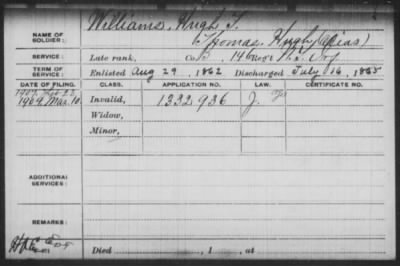 NAME OF SOLDIER: Williams, Hugh T.
Hugh (Alias)
SERVICE: Late rank, Co. 146 Reg't Inf
TERM OF SERVICE: Enlisted Aug 29, 1862 Discharged July 16, 1865
DATE OF FILING. CLASS. APPLICATION NO. LAW. CERTIFICATE NO.
1909 Mar. 10 Invalid, 1332 936
Widow,
Minor,
ADDITIONAL SERVICES:
REMARKS:
Died , 1 , at